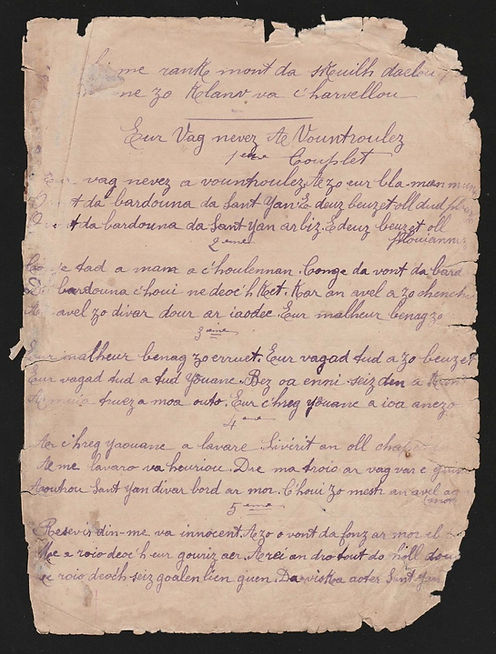 me rank mont da skuilh daelou
ne zo klanv va c'harvellou
Eur Vag nevez A Vountroulez
1ère Couplet
vag nevez a vountroulez. A zo eur bla-man
da bardouna da Sant Yan. E deuz beuzet oll dud
da bardouna da Sant Yan ar biz. E deuz beuzet oll
Plouianniz
2eme
tad a mam a c'houlennan. Conge da vont da bard
bardouna c'houi ne deoc'h ket. Kar an avel a zo chench
avel zo divar dour ar iaodec. Eur malheur benag zo
3eme
Eur malheur benag zo erruet. Eur vagad tud a zo beuzet
Eur vagad tud a tud youanc. Bez oa enni seiz den a
muia truez a moa outo. Eur c'hreg youanc a ioa anezo
4eme
Ar c'hreg yaouanc a lavare. Livirit an oll
me lavaro va heuriou. Dre ma troio ar vag var e
Aoutrou Sant Yan divar bord ar mor. C'houi zo mestr an avel
mor
5eme
Resevit din-me va innocent. A zo o vont da fonz ar mor
Me a roio deoc'h eur gouriz aer. A rei an dro tout do
roio deoc'h seiz goalen lien guen. Da viskea aoter Sant Yan